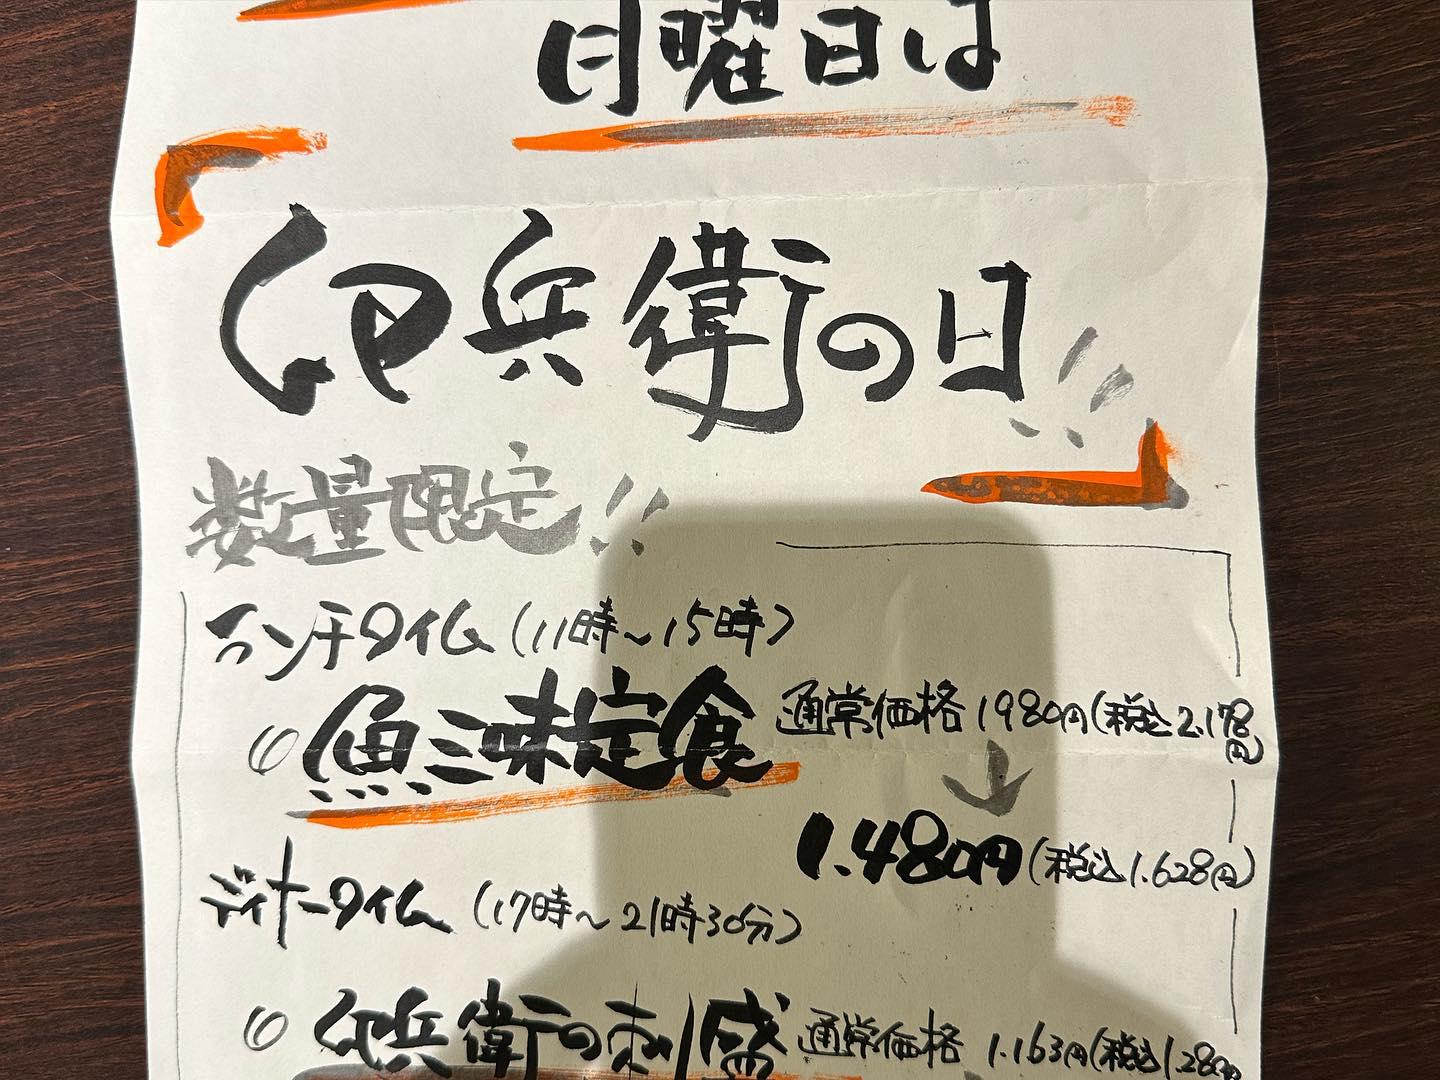 日曜日は
卯兵衛の日!!
数量限定!!
ランチタイム (11時~15時)
◎魚三味定食 通常価格 1980円(税込2.178円)
↓
1.480円(税込1.628円)
ディナータイム (17時~21時30分)
◎卯兵衛の刺盛 通常価格 1.163円(税込1.280円